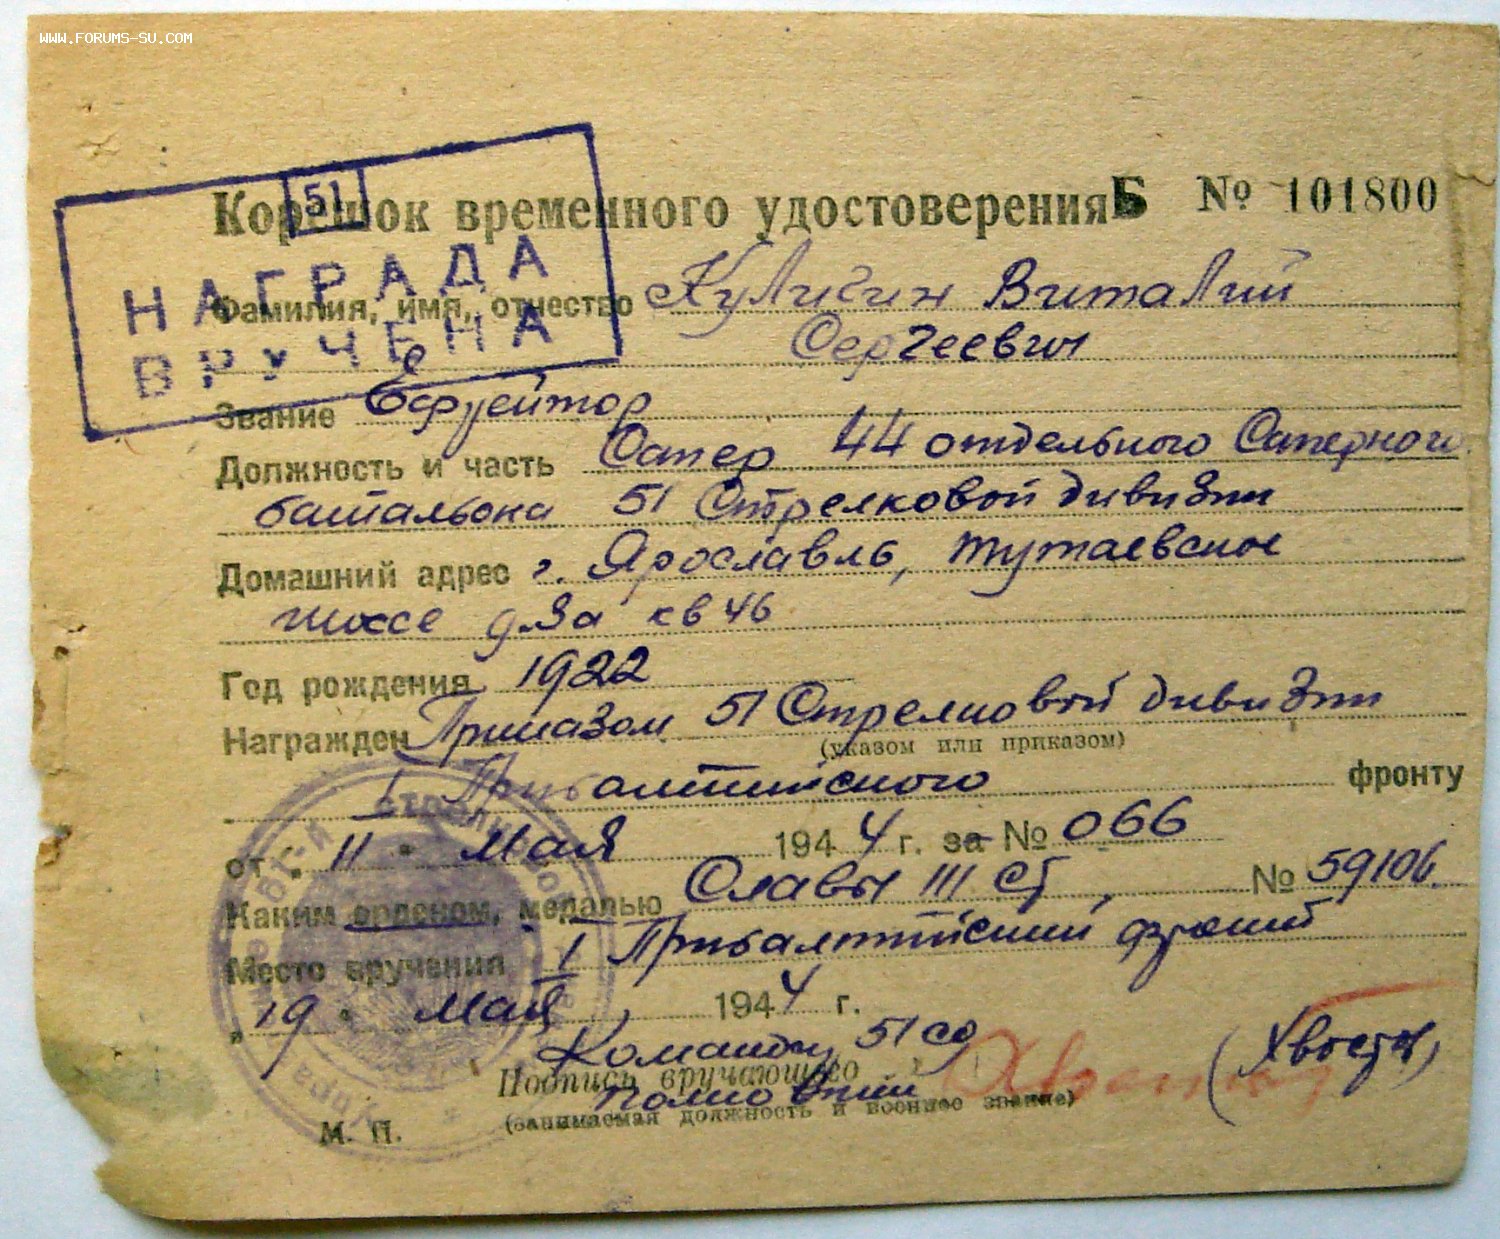 WWW.FORUMS-SU.COM
51
НАГРАДА
ВРУЧЕНА
Корешок временного удостоверения Б № 101800
Фамилия, имя, отчество Кулигин Виталий
Сергеевич
Звание Ефрейтор
Должность и часть Сапер 44 отдельного Саперного
батальона 51 Стрелковой дивизии
Домашний адрес г. Ярославль, Тутаевское
шоссе кв 46
Год рождения 1922
Награжден Приказом 51 Стрелковой дивизии
(указом или приказом)
1 Прибалтийского фронту
от " 11 " Мая 1944 г. за № 066
Каким орденом, медалью Славы III ст, № 59106
Место вручения 1 Прибалтийский
" 19 " мая, 1944 г.
51 сд (Хвостов)
Подпись вручающего
(занимаемая должность и военное звание)
М. П.